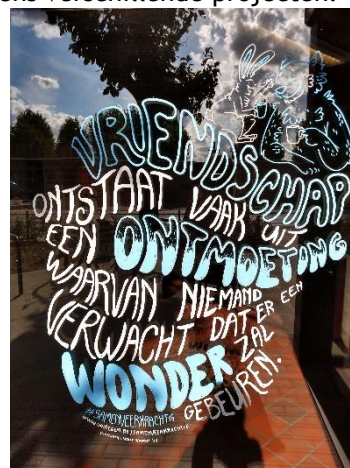 VRIENDSCHAP
ONTSTAAT VAAK UIT
EEN ONTMOETONG
WAARVAN NIEMAND
VERWACHT DAT ER EEN
WONDER ZAL
GEBEUREN.
#SAMENVEERKRACHTIG